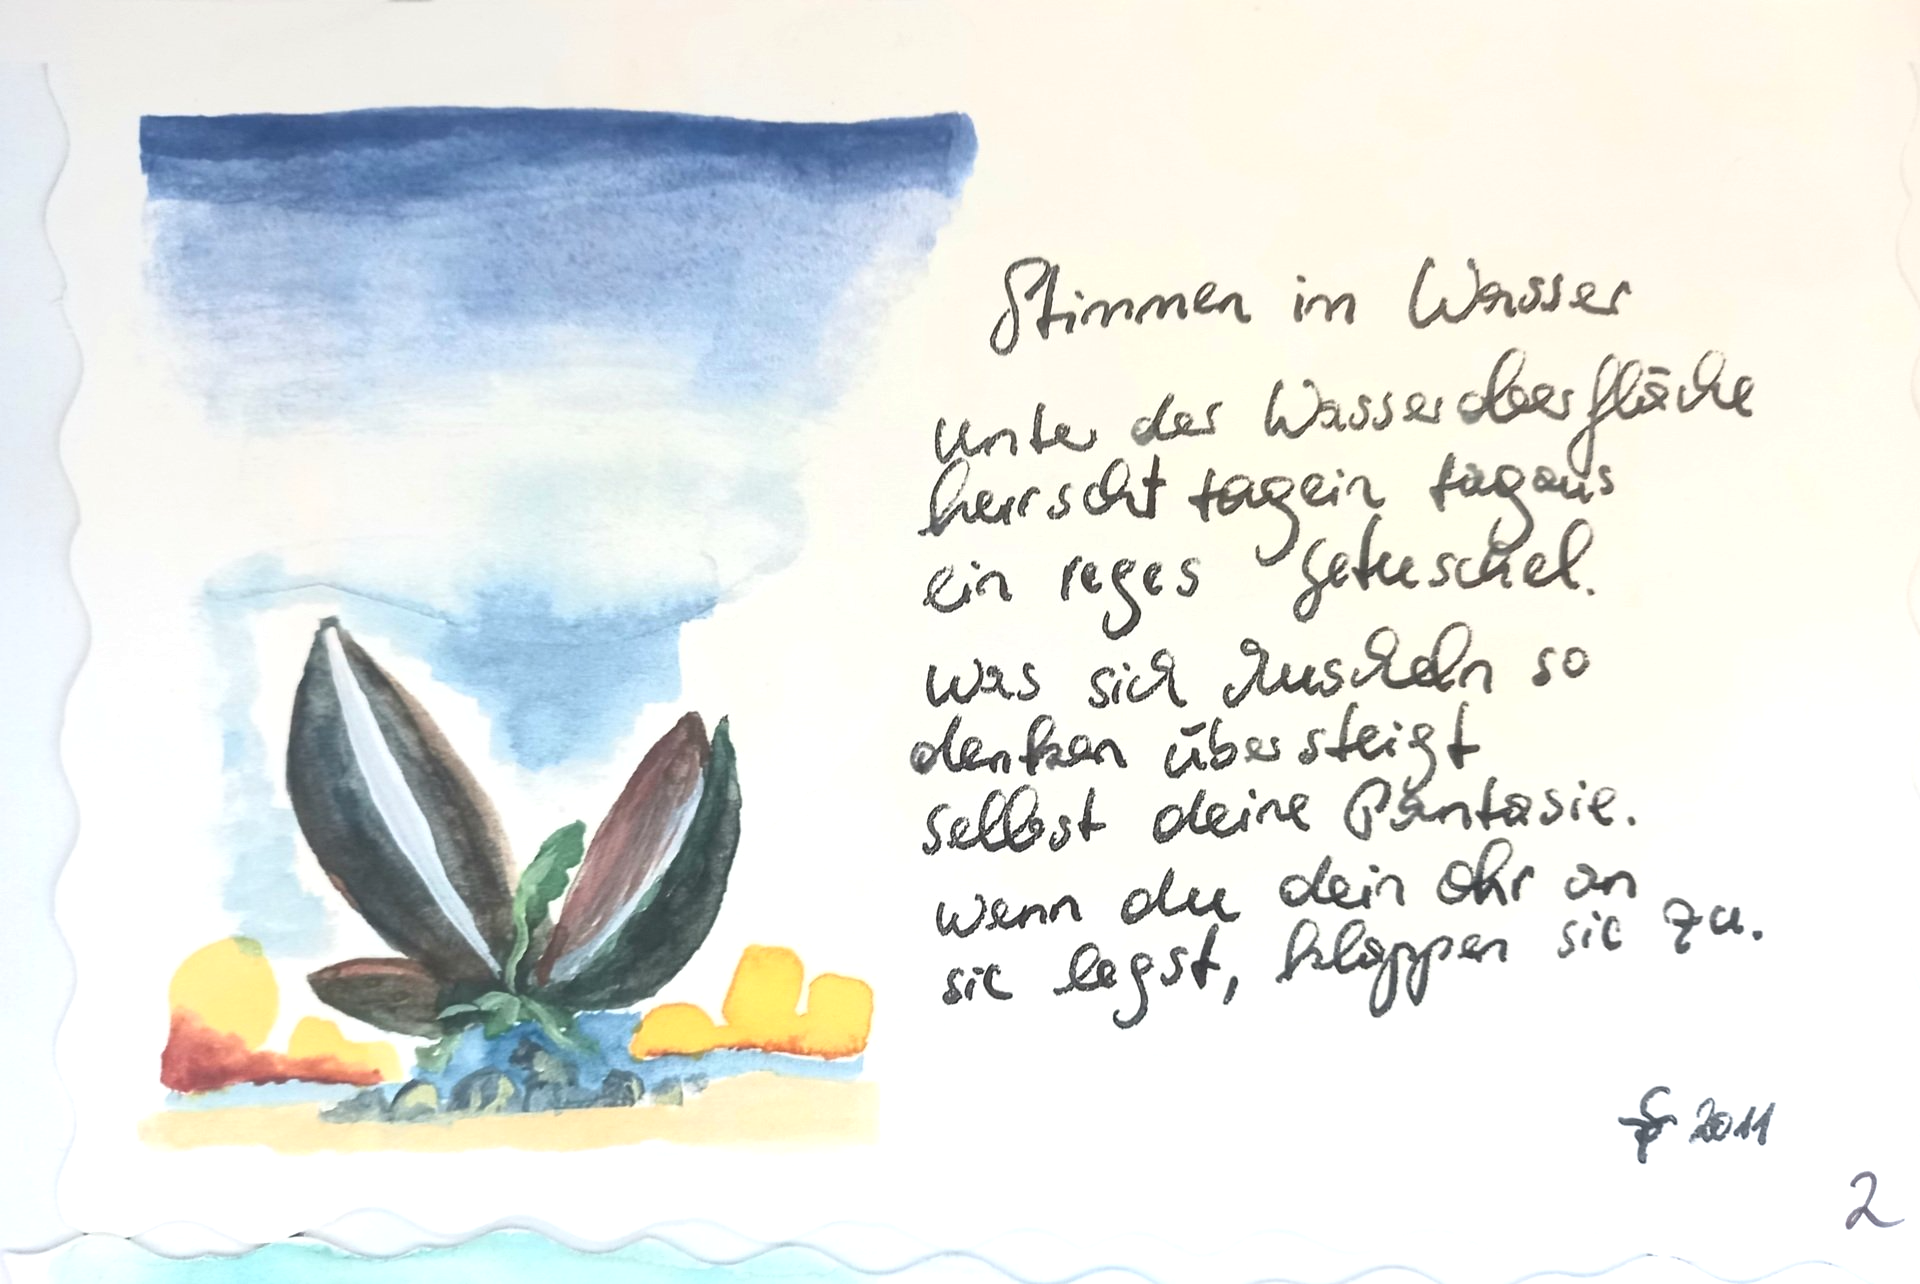 Stimmen im Wasser
unter der Wasseroberfläche
herrscht tagein tagaus
ein reges Getuschel.
was sich Muscheln so
denken übersteigt
selbst deine Pantasie.
wenn du dein Ohr an
sie legst, klappen sie zu.
2011
2